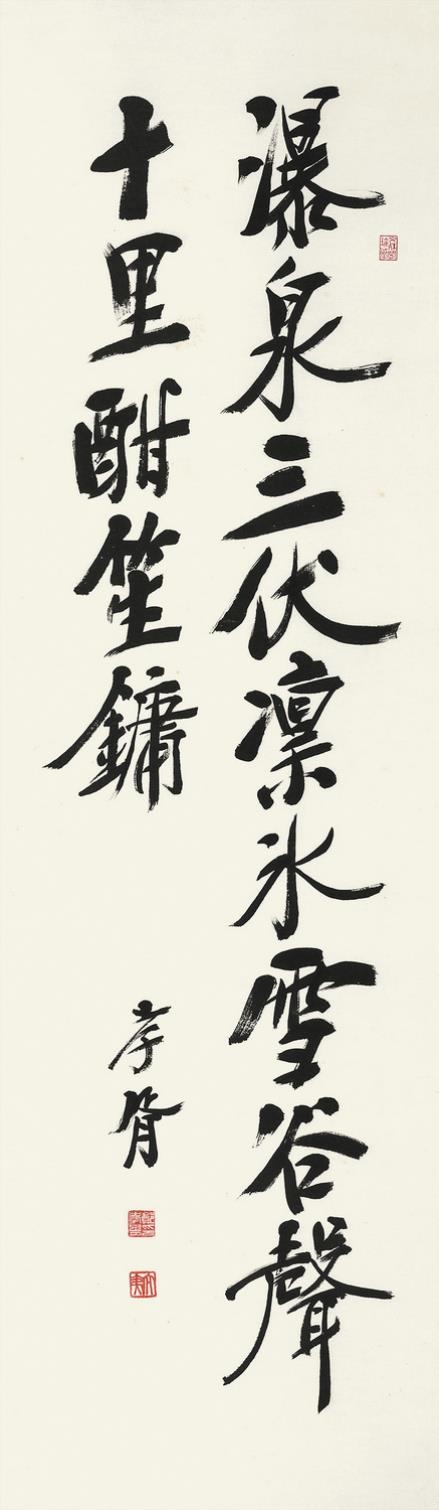 瀑泉三伏凜氷雪谷聲
十里酣笙鏞
孝胥